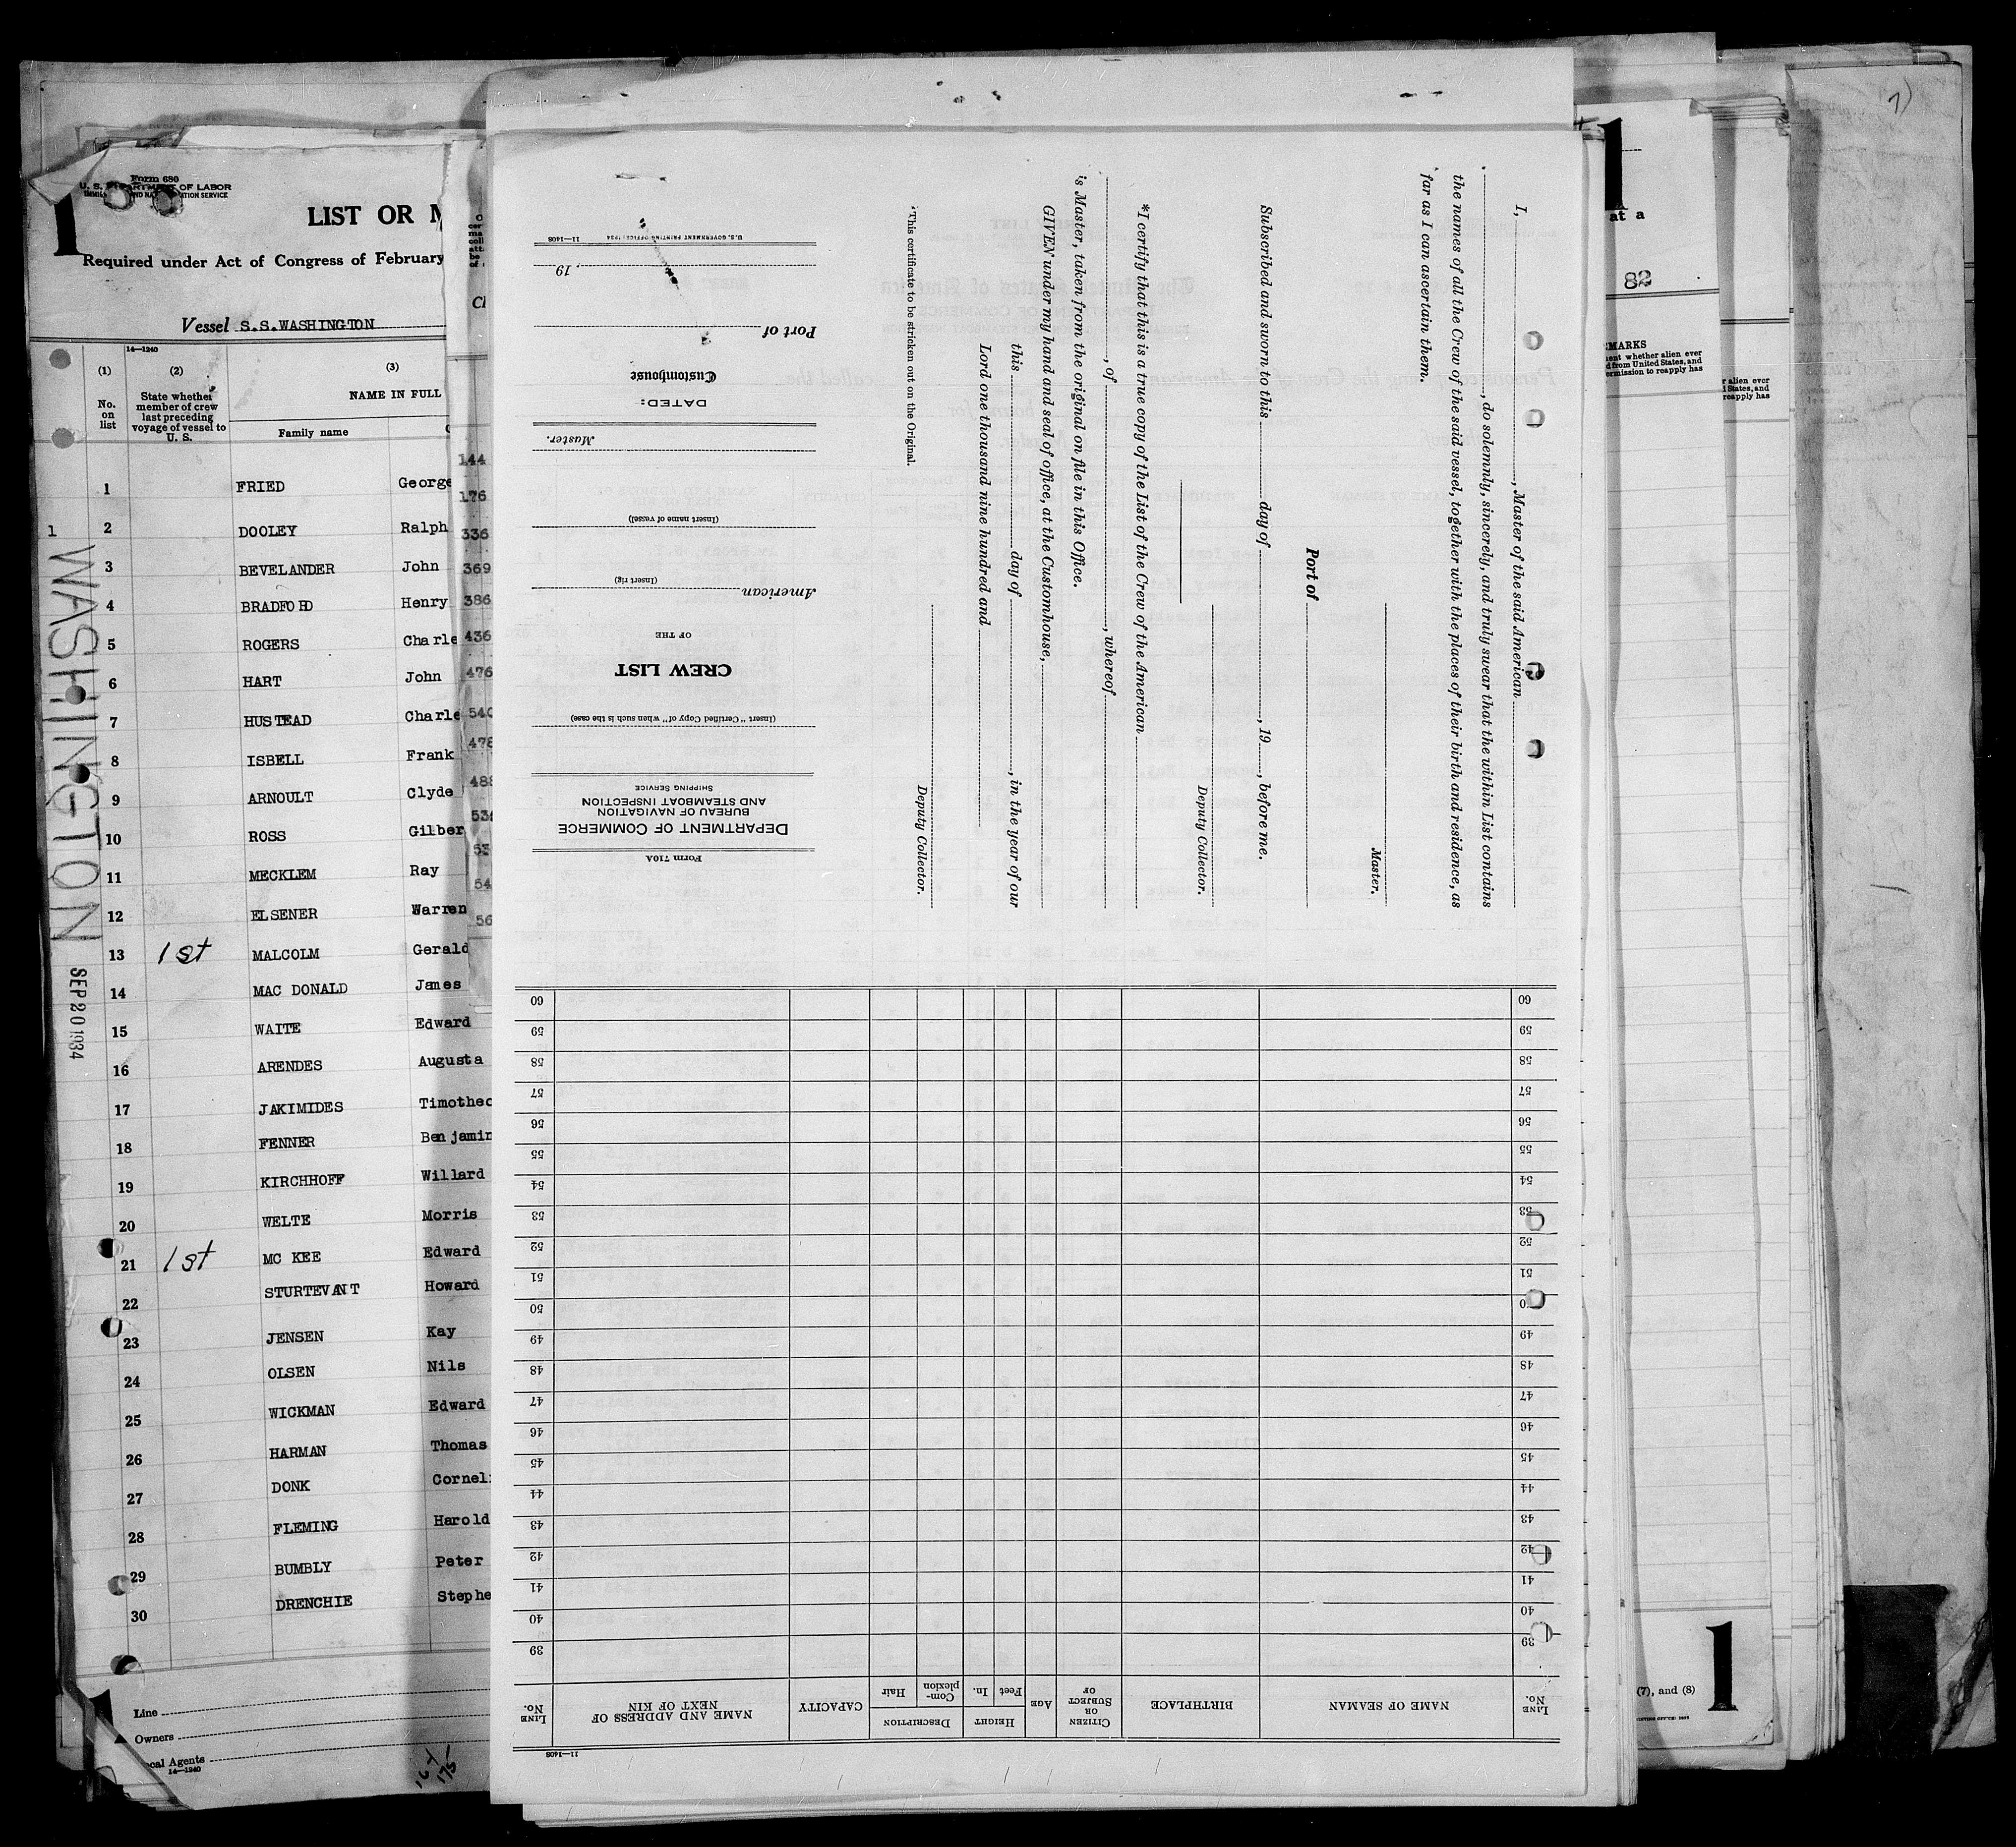 Form 680
U. S. DEPARTMENT OF LABOR
1
LIST OR
Required under Act of Congress of February
Vessel S.S.WASHINGTON
14—1240
(1) (2) (3)
No. on list
State whether member of crew last preceding voyage of vessel to U. S.
NAME IN FULL
Family name
1 FRIED George
1 2 DOOLEY Ralph
3 BEVELANDER John
4 BRADFORD Henry
5 ROGERS Charle
6 HART John
7 HUSTEAD Charle
8 ISBELL Frank
9 ARNOULT Clyde
10 ROSS Gilber
11 MECKLEM Ray
12 ELSENER Warren
13 1st MALCOLM Gerald
14 MAC DONALD James
15 WAITE Edward
16 ARENDES Augusta
17 JAKIMIDES Timotheo
18 FENNER Benjamin
19 KIRCHHOFF Willard
20 WELTE Morris
21 1st MC KEE Edward
22 STURTEVANT Howard
23 JENSEN Kay
24 OLSEN Nils
25 WICKMAN Edward
26 HARMAN Thomas
27 DONK Corneli
28 FLEMING Harold
29 BUMBLY Peter
30 DRENCHIE Stephe
WASHINGTON
SEP 20 1934
Line
Owners
cal Agents
14—1240
144
176
336
369
386
436
476
540
478
488
I, , Master of the said American
, do solemnly, sincerely, and truly swear that the within List contains
the names of all the Crew of the said vessel, together with the places of their birth and residence, as
far as I can ascertain them.
Master.
Port of
Subscribed and sworn to this day of , 19 , before me.
Deputy Collector.
*I certify that this is a true copy of the List of the Crew of the American
, of , whereof
is Master, taken from the original on file in this Office.
GIVEN under my hand and seal of office, at the Customhouse,
this day of , in the year of our
Lord one thousand nine hundred and
Deputy Collector.
*This certificate to be stricken out on the Original.
Form 710A
DEPARTMENT OF COMMERCE
BUREAU OF NAVIGATION
AND STEAMBOAT INSPECTION
SHIPPING SERVICE
(Insert "Certified Copy of" when such is the case)
CREW LIST
OF THE
American
(Insert rig)
(Insert name of vessel)
Master.
DATED:
Customhouse
Port of
, 19
U.S. GOVERNMENT PRINTING OFFICE: 1934 11—1408
11—1408
LINE No.
NAME OF SEAMAN
BIRTHPLACE
CITIZEN OR SUBJECT OF
AGE
HEIGHT
Feet In.
DESCRIPTION
Complexion Hair
CAPACITY
NAME AND ADDRESS OF NEXT OF KIN
LINE No.
39 39
40 40
41 41
42 42
43 43
44 44
45 45
46 46
47 47
48 48
49 49
50 50
51 51
52 52
53 53
54 54
55 55
56 56
57 57
58 58
59 59
60 60
1
at a
82
MARKS
ent whether alien ever
d from United States, and
ermission to reapply has
r alien ever
States, and
reapply has
(7), and (8)
1